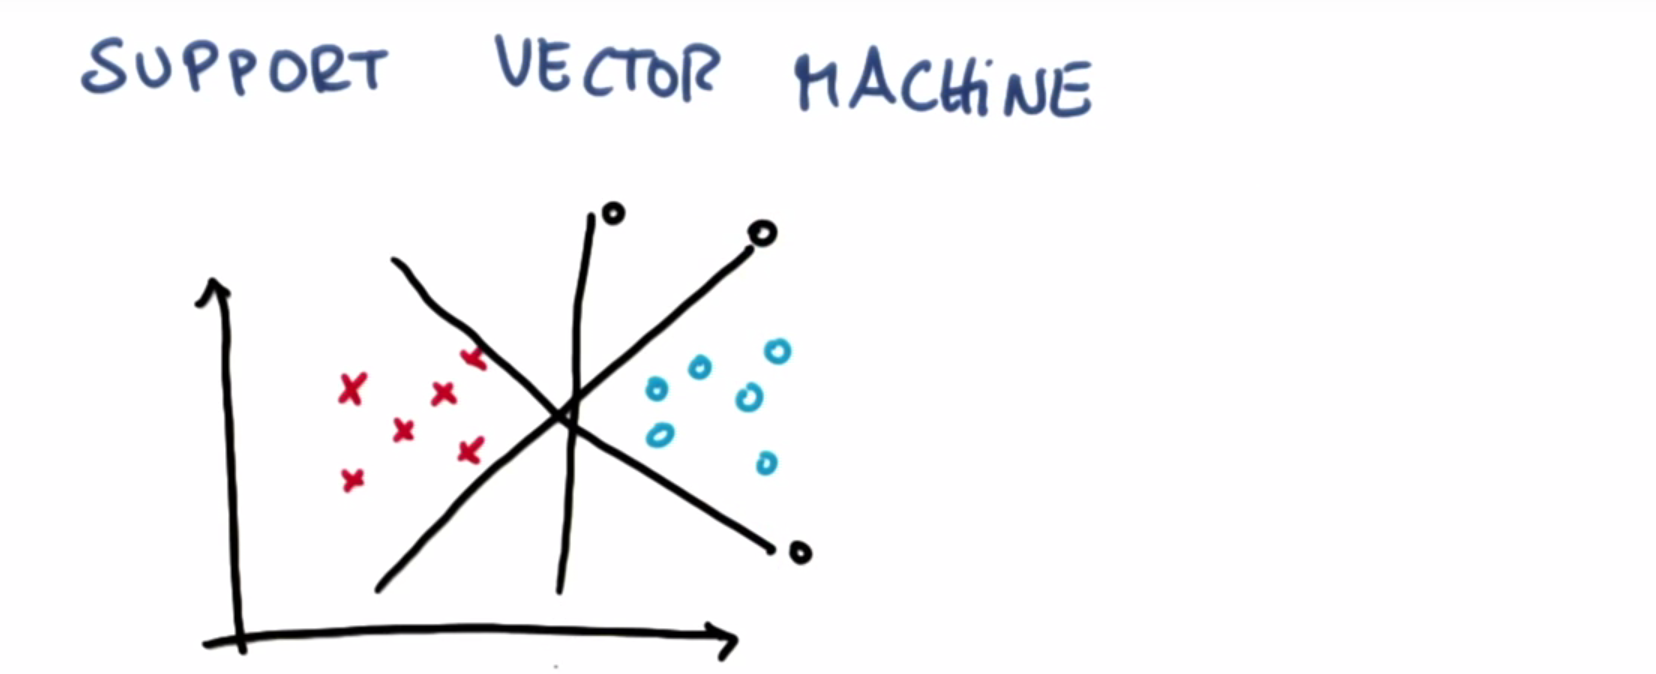 SUPPORT VECTOR MACHiNE